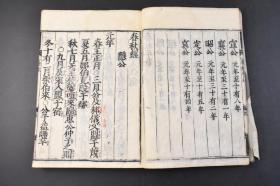 襄公 元年至三十有一年
昭公 元年至三十有二年
定公 元年至十有五年
哀公 元年至十有四年
春秋經
隱公
元年
春王正月三月公及邾儀父盟于蔑
夏五月鄭伯克段于鄢
秋七月天王使宰咺來歸惠公仲子之
賵九月及宋人盟于宿
冬十有二月祭伯來 公子益師卒